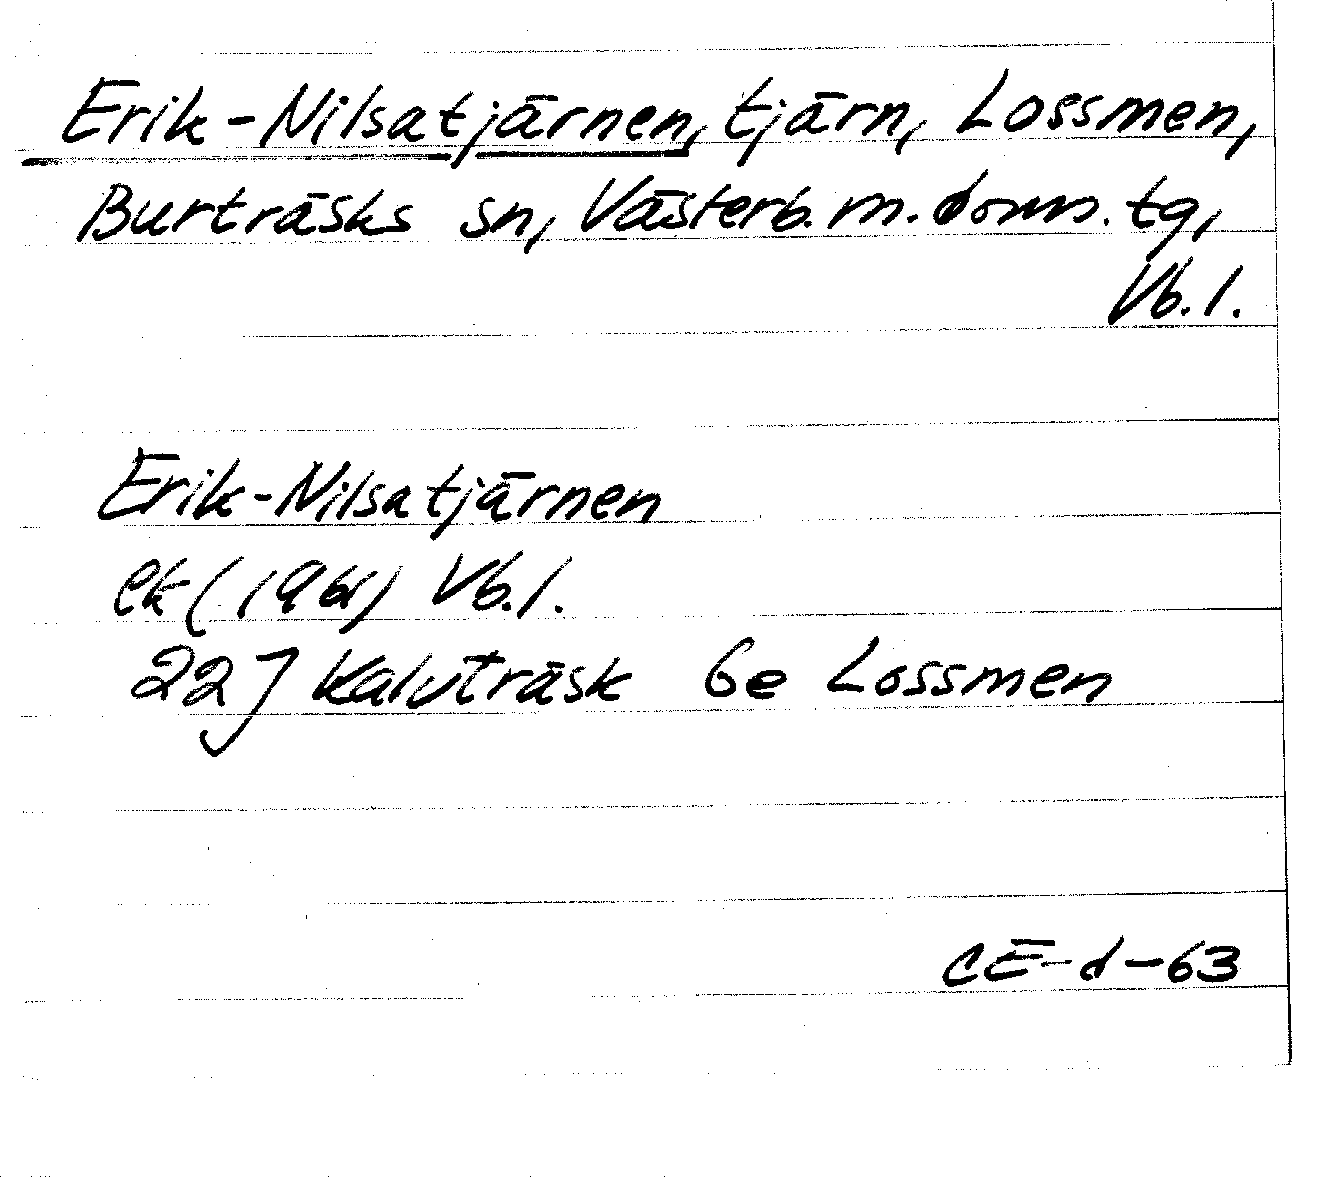 Erik-Nilsatjärnen, tjärn, Lossmen,
Burträsks sn, Västerb. m. doms. tg,
Vb. l.
Erik-Nilsatjärnen
ek (1961) Vb. l.
22J Kalvträsk 6e Lossmen
CE-d-63